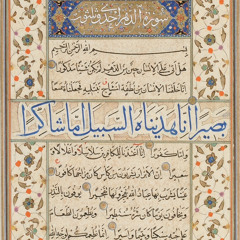 سورة الدهر احدى وثلثون
بسم الله الرحمن الرحيم
هل اتى على الانسان حين من الدهر لم يكن شيئا مذكورا
انا خلقنا الانسان من نطفة امشاج نبتليه فجعلناه سميعا
بصيرا انا هديناه السبيل اما شاكرا
واما كفورا انا اعتدنا للكافرين سلاسلا واغلالا و
سعيرا ان الابرار يشربون من كاس كان مزاجها كافورا
عينا يشرب بها عباد الله يفجرونها تفجيرا يوفون بالنذر
ويخافون يوما كان شره مستطيرا ويطعمون الطعام
على حبه مسكينا ويتيما واسيرا انما